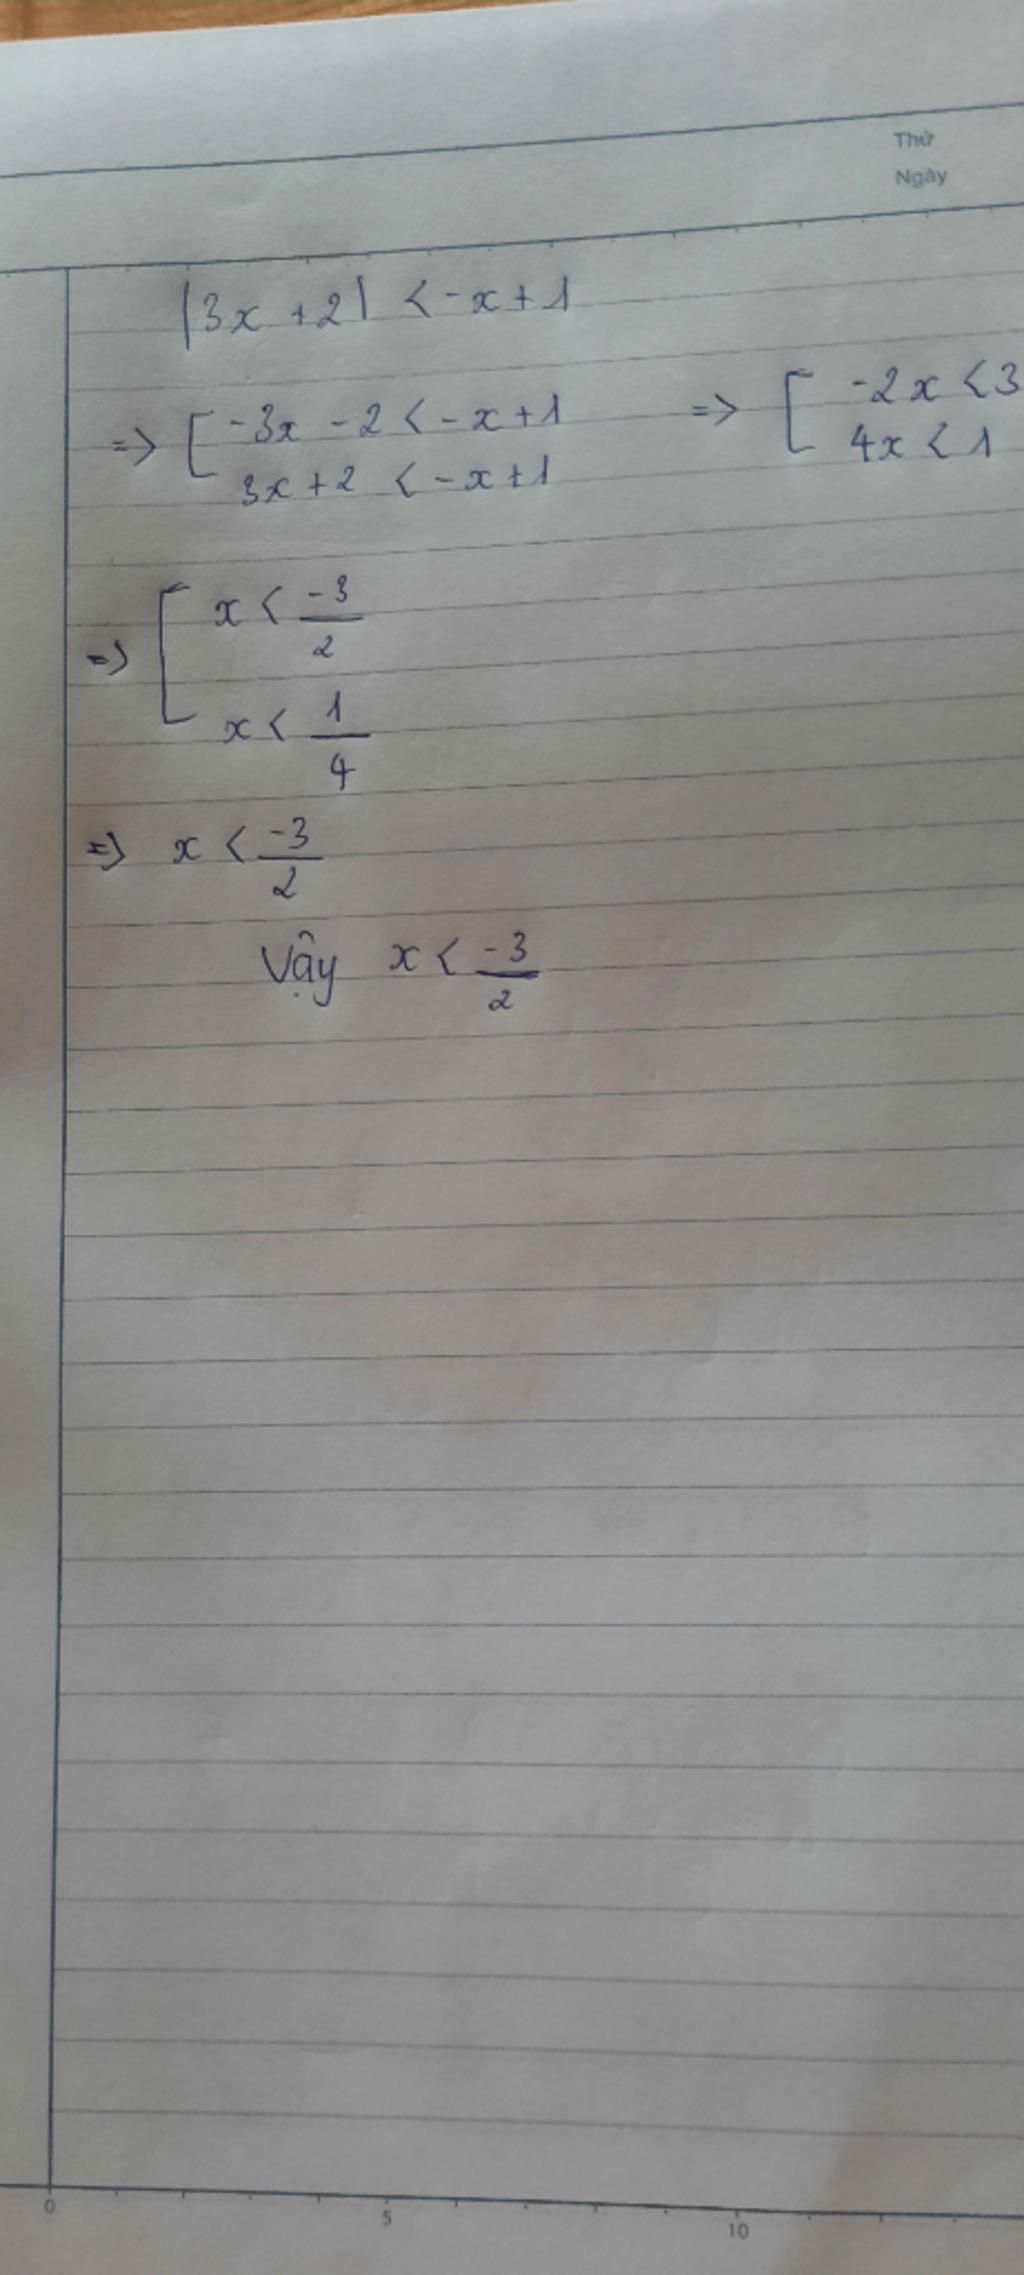 Thứ
Ngày
|3x + 2| < -x + 1
=> [ -3x - 2 < -x + 1 => [ -2x < 3
3x + 2 < -x + 1 4x < 1
=> [ x < -3/2
x < 1/4
=> x < -3/2
Vậy x < -3/2
0 5 10